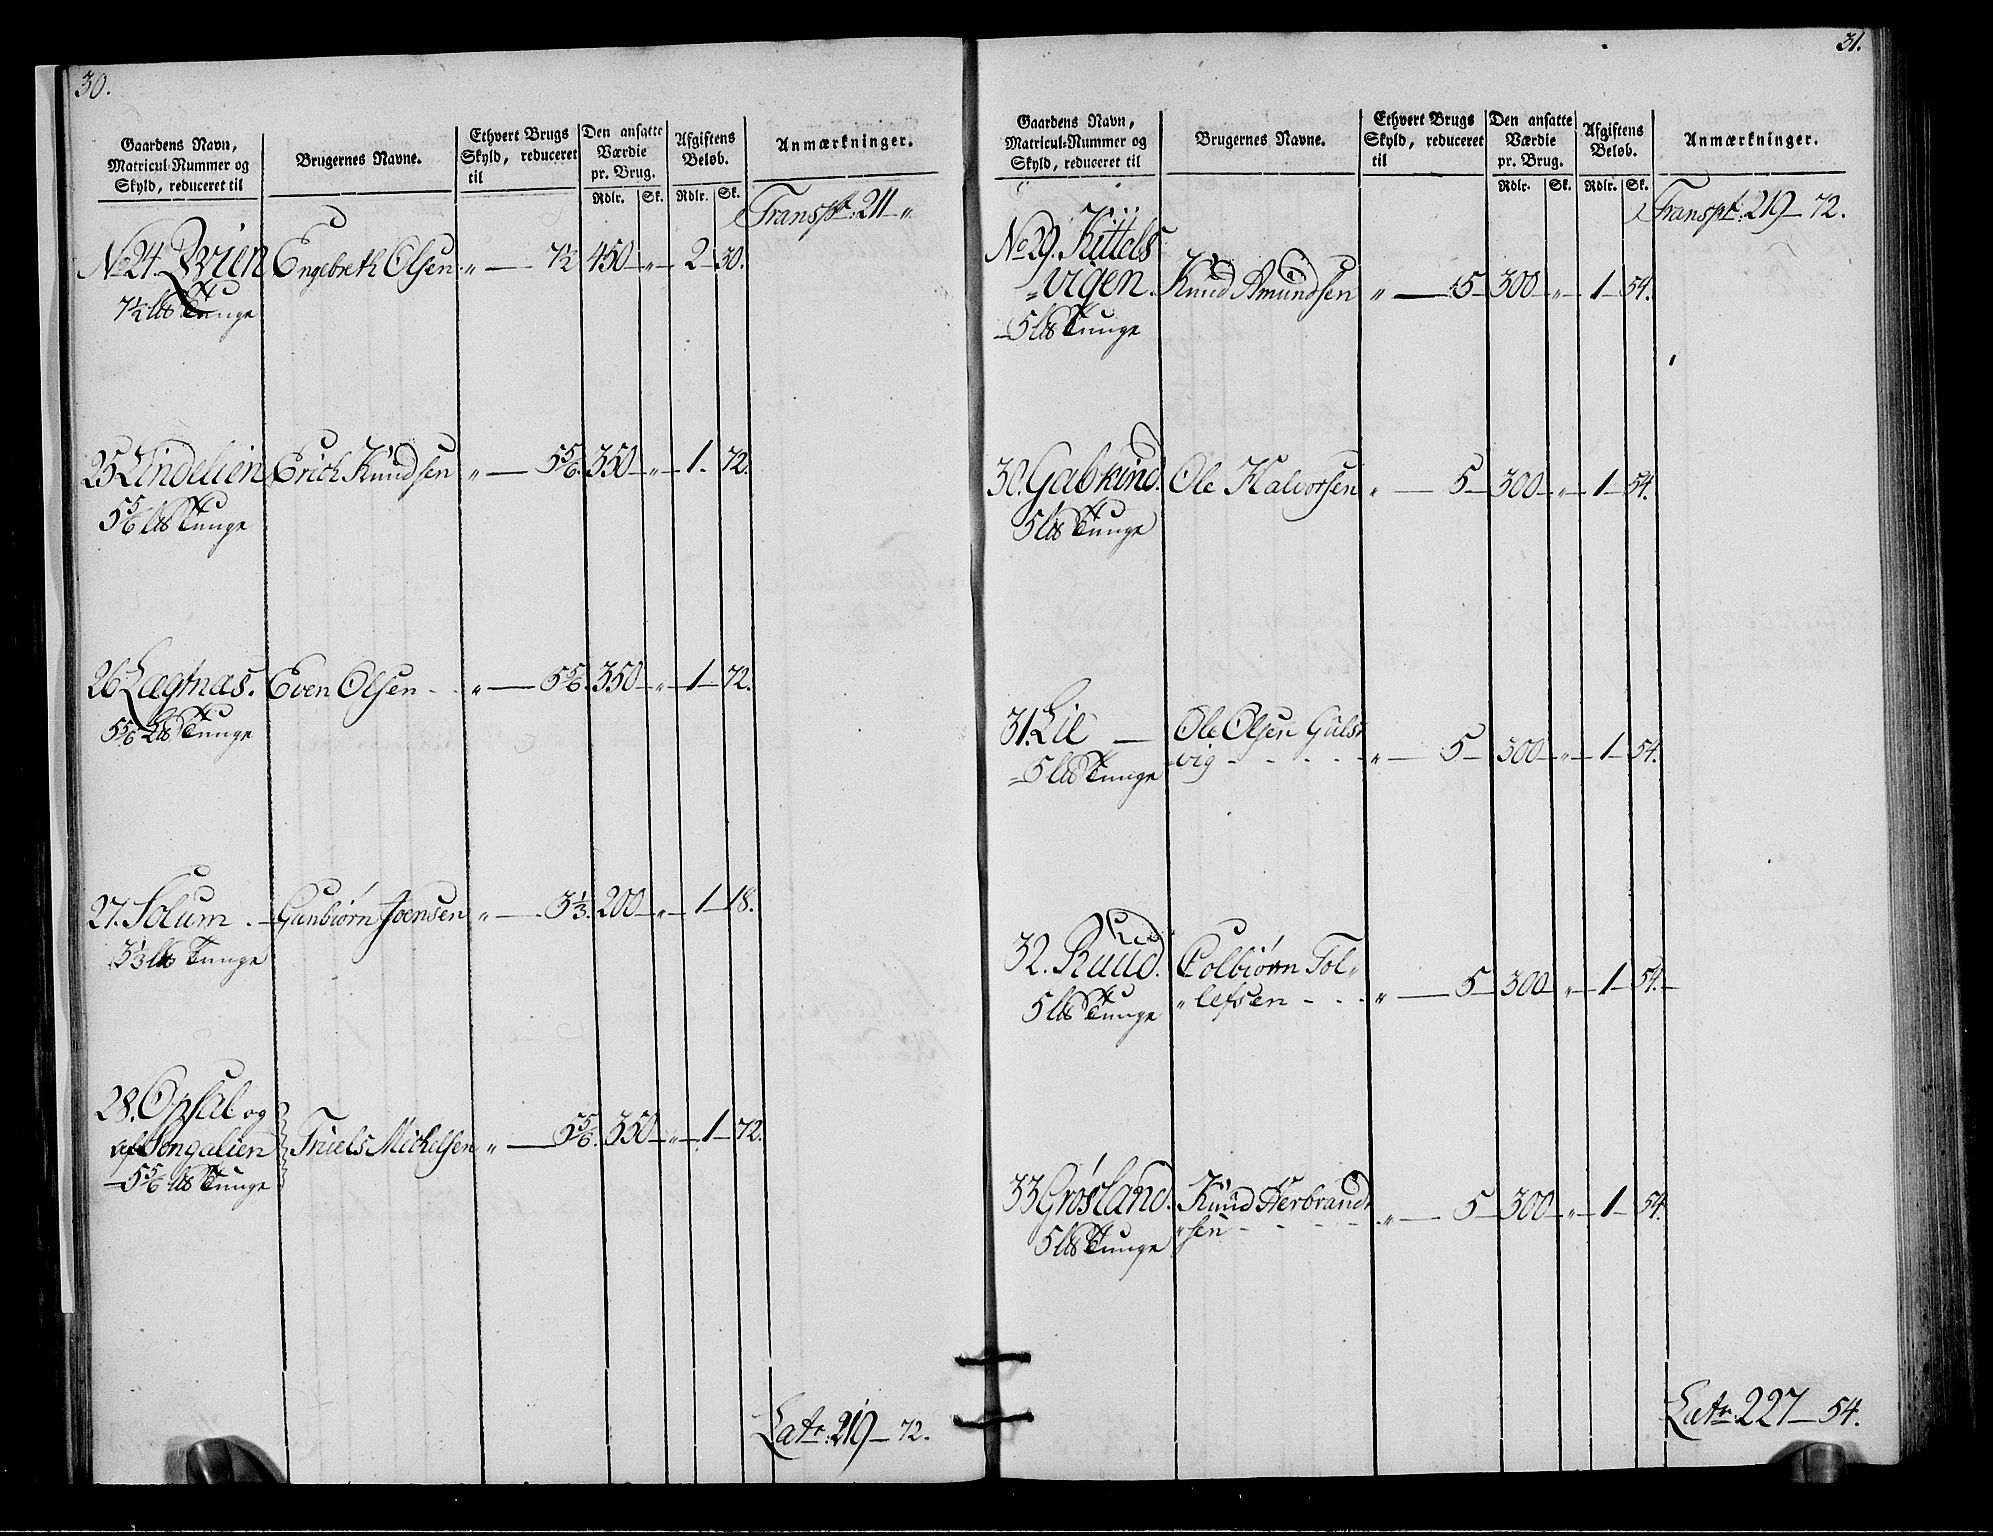 30.
Gaardens Navn, Matricul-Nummer og Skyld, reduceret til
Brugernes Navne.
Ethvert Brugs Skyld, reduceret til
Den ansatte Værdie pr. Brug.
Rdlr. Sk.
Afgiftens Beløb.
Rdlr. Sk.
Anmærkninger.
Transpt: 211 - "
No 24 Qvien Engebreth Olsen. " — 7½ 450 - " - 2 - 30.
7½ lb Tunge
25 Lindelien Erich Knudsen " — 5 5/6. 350 - " - 1 - 72.
5 5/6 lb Tunge
26 Lægtnas. Even Olsen - - " — 5 5/6. 350 - " - 1 - 72.
5 5/6 lb Tunge
27. Solum. - Gunbiørn Joensen " — 3 1/3. 200 - " - 1 - 18.
3 1/3 lb Tunge
28. Opsal og
af Tongalien Truels Michelsen " — 5 5/6. 350 - " - 1 - 72.
5 5/6 lb Tunge
Latr: 219 - 72.
31.
Gaardens Navn, Matricul-Nummer og Skyld, reduceret til
Brugernes Navne.
Ethvert Brugs Skyld, reduceret til
Den ansatte Værdie pr. Brug.
Rdlr. Sk.
Afgiftens Beløb.
Rdlr. Sk.
Anmærkninger.
Transpt: 219 - 72.
No 29. Kittels
"vigen. Knud Amundsen " — 5 - 300 - " - 1 - 54.
5 lb Tunge
30. Gabkind. Ole Halvorsen " — 5 - 300 - " - 1 - 54.
5 lb Tunge
31. Lie — Ole Olsen Guls-
5 lb Tunge vig - - - - " — 5 - 300 - " - 1 - 54.
32. Ruud. Colbiørn Tol-
5 lb Tunge "lefsen - - - " — 5 - 300 - " - 1 - 54.
33 Grøsland. Knud Herbrand-
5 lb Tunge "sen - - - - " — 5 - 300 - " - 1 - 54.
Latr: 227 - 54.